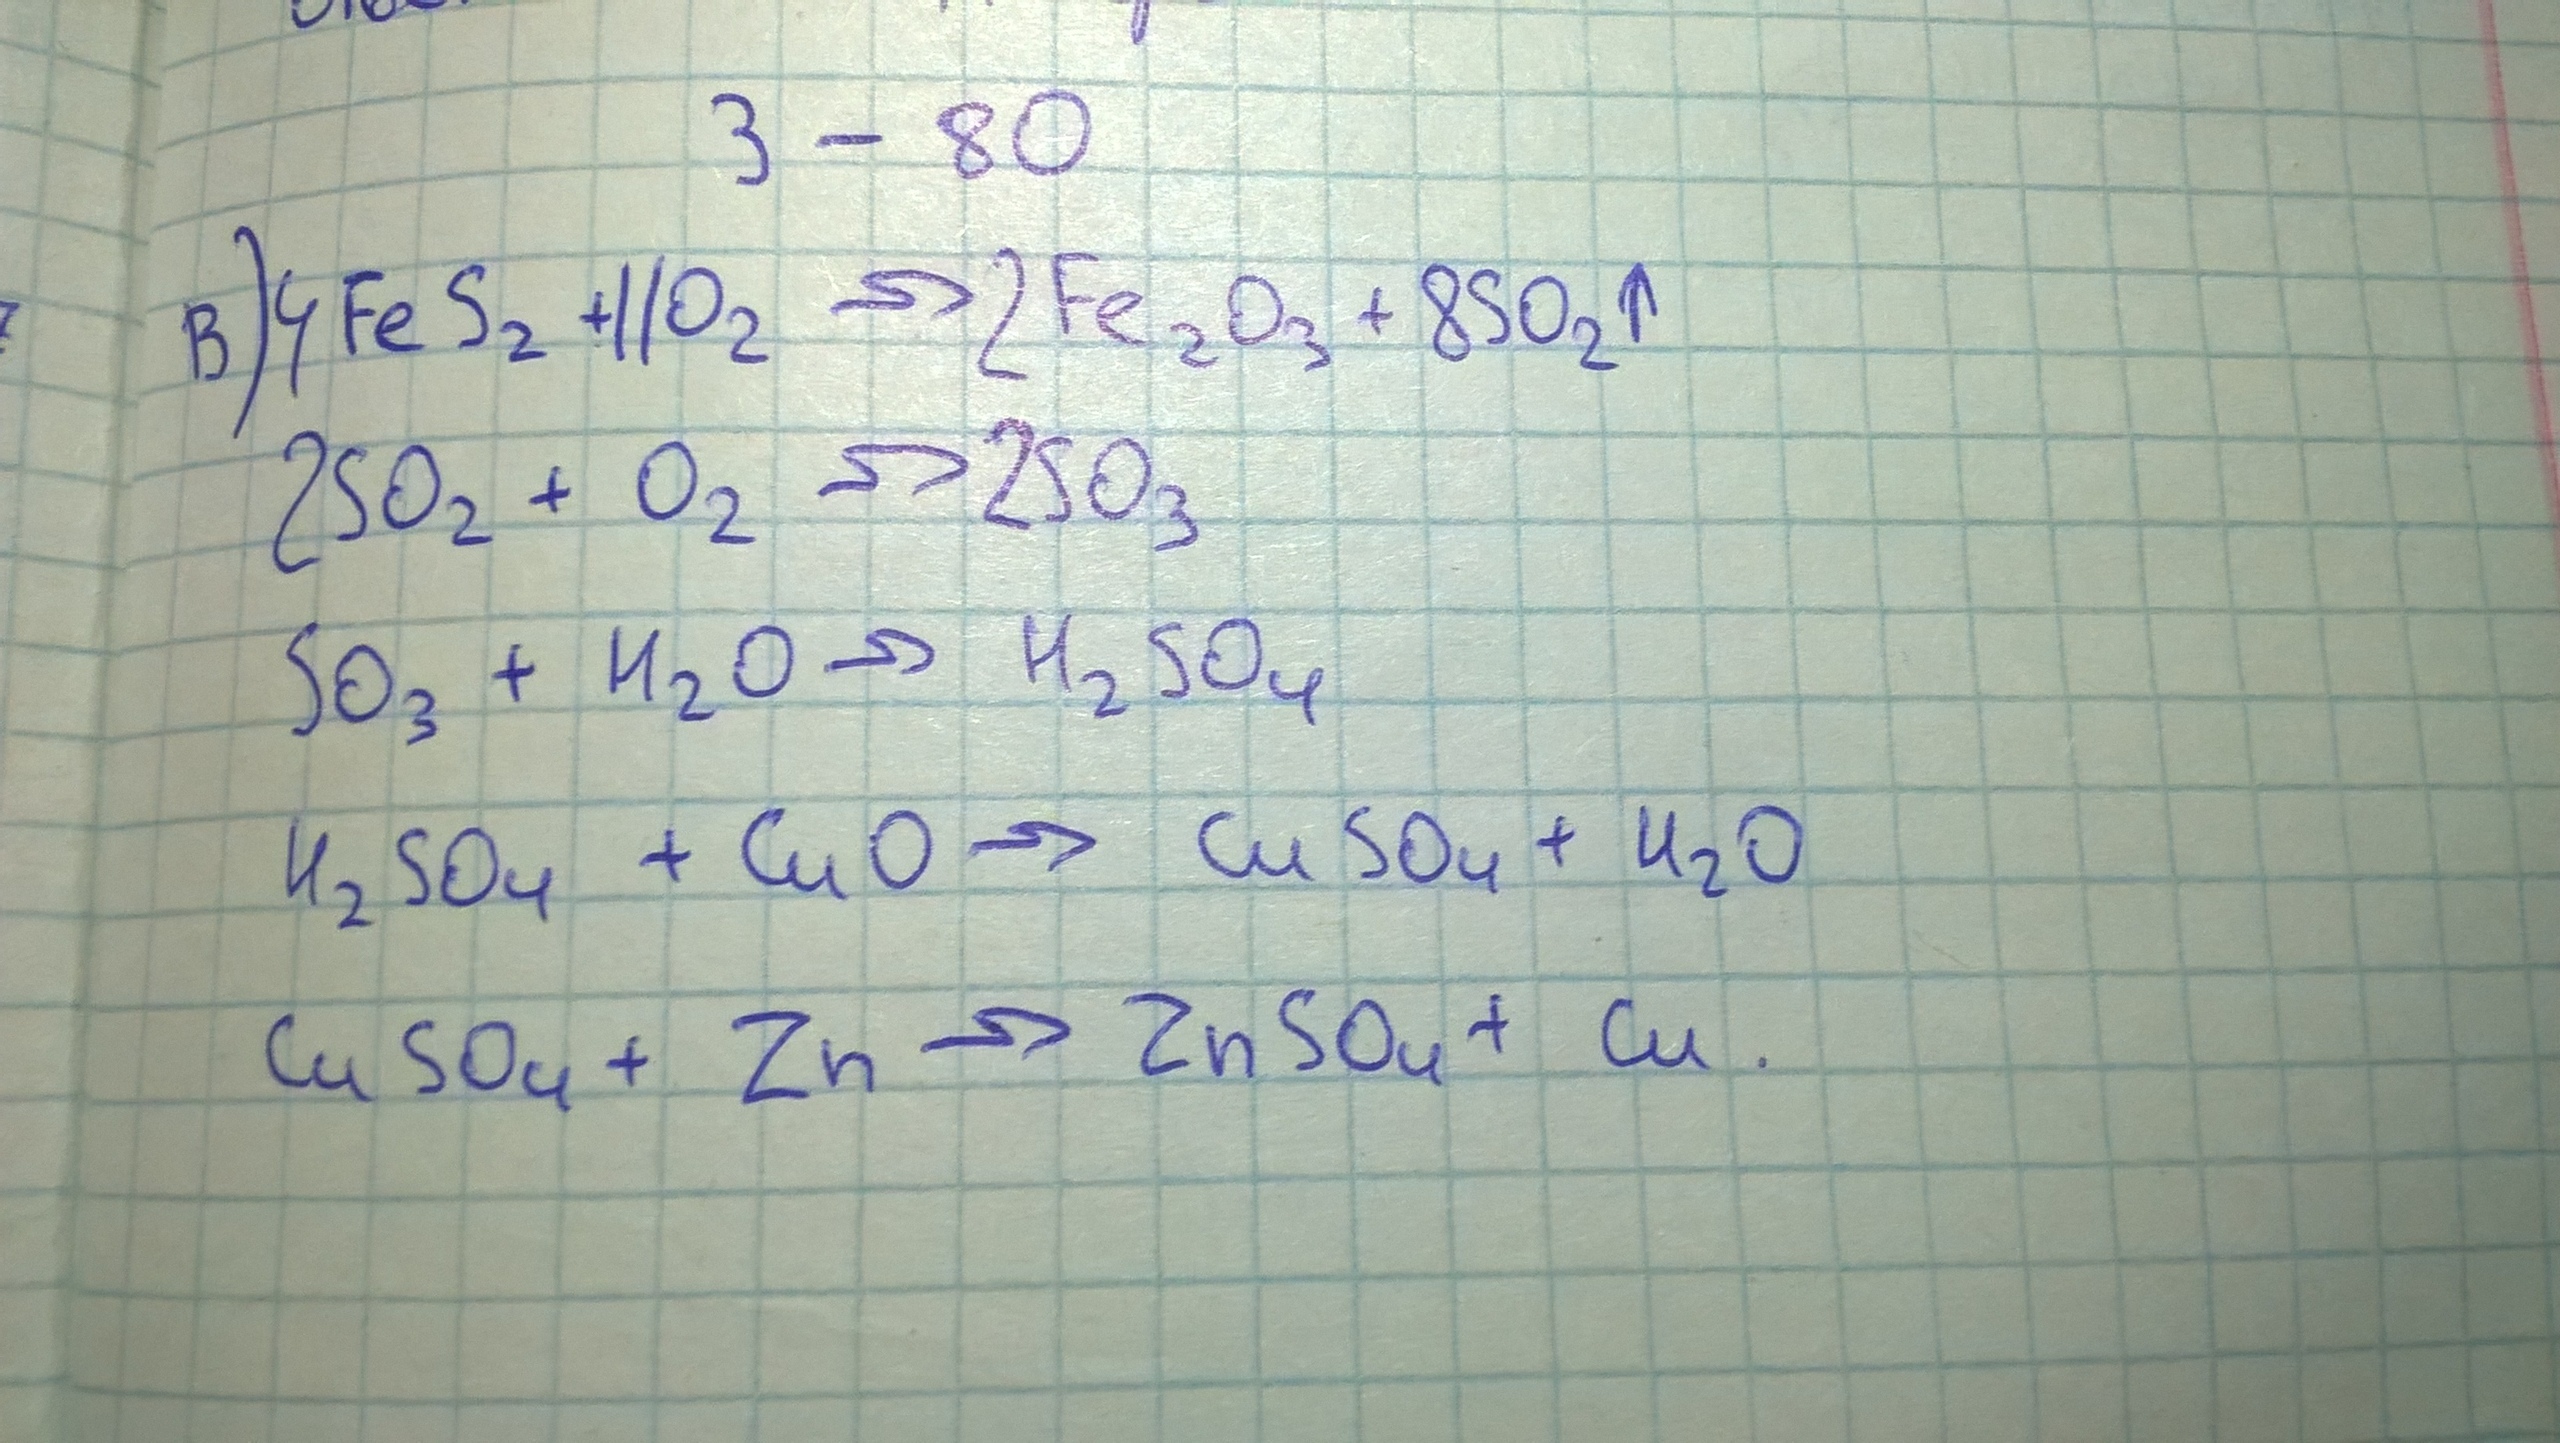 3 - 80
в) 4FeS₂ + 11O₂ → 2Fe₂O₃ + 8SO₂↑
2SO₂ + O₂ → 2SO₃
SO₃ + H₂O → H₂SO₄
H₂SO₄ + CuO → CuSO₄ + H₂O
CuSO₄ + Zn → ZnSO₄ + Cu.